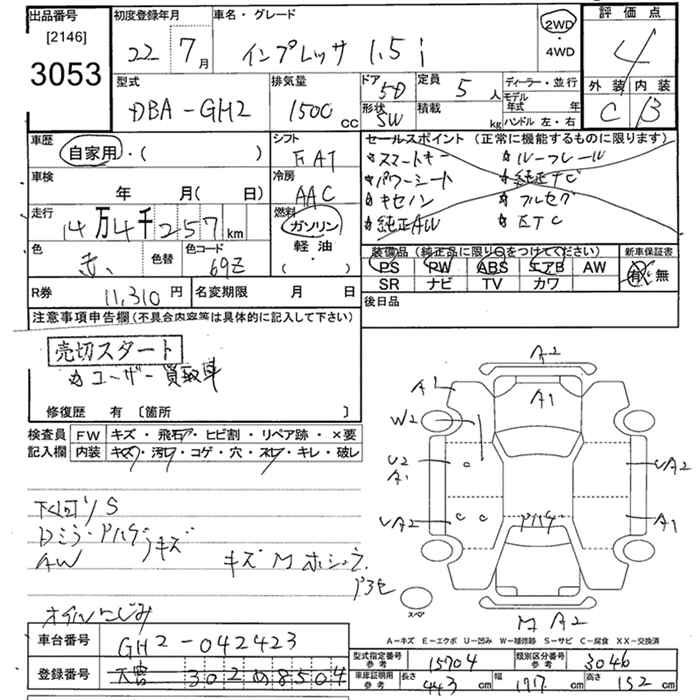 出品番号
[2146]
3053
初度登録年月
22年 7月
車名・グレード
インプレッサ 1.5i
2WD
・
4WD
評価点
4
外装 内装
C B
型式
DBA-GH2
排気量
1500cc
ドア
5D
形状
SW
定員
5人
積載
kg
ディーラー・並行
モデル
年式 年
ハンドル 左・右
車歴
自家用・( )
シフト
FAT
セールスポイント (正常に機能するものに限ります)
スマートキー
ルーフレール
パワーシート
純正TV
キセノン
フルセグ
純正AW
ETC
車検
年 月( 日)
冷房
AAC
走行
14万4千257km
燃料
ガソリン
軽油
( ・ )
色
赤
色替
色コード
69Z
装備品 (純正品に限り○をつけてください)
PS PW ABS エアB AW
SR ナビ TV カワ
新車保証書
有・無
R券
11,310円
名変期限 月 日
後日品
注意事項申告欄 (不具合内容等は具体的に記入して下さい)
売切スタート
ユーザー買取車
修復歴 有 〔箇所 〕
検査員
記入欄
FW キズ・飛石・ヒビ割・リペア跡・×要
内装 キズ・汚レ・コゲ・穴・スレ・キレ・破レ
下回りS
Dミラ・Pハゲ・キズ
AW
キズM ホシュウ
オイルにじみ
A2
A1
A1
W2
U2
A1
UA2
UA2
A1
Pハゲ
スペア
M A2
A-キズ E-エクボ U-凹み W-補修跡 S-サビ C-腐食 XX-交換済
車台番号
GH2-042423
登録番号
302め8504
型式指定番号
参考
15704
類別区分番号
参考
3046
車庫証明用
参考
長さ
443cm
幅
177cm
高さ
152cm